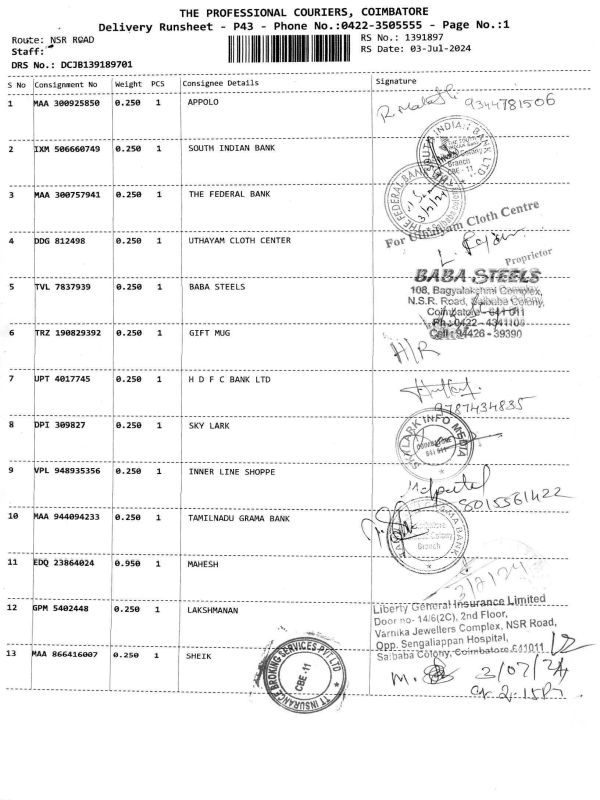 THE PROFESSIONAL COURIERS, COIMBATORE
Delivery Runsheet - P43 - Phone No.:0422-3505555 - Page No.:1
Route: NSR ROAD
RS No.: 1391897
Staff:
RS Date: 03-Jul-2024
DRS No.: DCJB139189701
S No Consignment No Weight PCS Consignee Details Signature
1 MAA 300925850 0.250 1 APPOLO
9344781506
2 IXM 506660749 0.250 1 SOUTH INDIAN BANK
3 MAA 300757941 0.250 1 THE FEDERAL BANK
THE FEDERAL BANK
3/7/24
4 DDG 812498 0.250 1 UTHAYAM CLOTH CENTER
For Uthayam Cloth Centre
Proprietor
5 TVL 7837939 0.250 1 BABA STEELS
BABA STEELS
108, Bagyalakshmi Complex,
N.S.R. Road, Saibaba Colony,
Coimbatore - 641 011
Ph: 0422 - 4341108
Cell: 94426 - 39390
6 TRZ 190829392 0.250 1 GIFT MUG
H/R
7 UPT 4017745 0.250 1 H D F C BANK LTD
9787434835
8 DPI 309827 0.250 1 SKY LARK
SKYLARK INFO MEDIA
COIMBATORE
641 011
9 VPL 948935356 0.250 1 INNER LINE SHOPPE
8015561422
10 MAA 944094233 0.250 1 TAMILNADU GRAMA BANK
Branch
11 EDQ 23864024 0.950 1 MAHESH
3/7/24
12 GPM 5402448 0.250 1 LAKSHMANAN
Liberty General Insurance Limited
Door no- 14/6(2C), 2nd Floor,
Varnika Jewellers Complex, NSR Road,
Opp. Sengaliappan Hospital,
Saibaba Colony, Coimbatore 641011
13 MAA 866416007 0.250 1 SHEIK
TT INSURANCE BROKING SERVICES PVT LTD
CBE -11
3/07/24